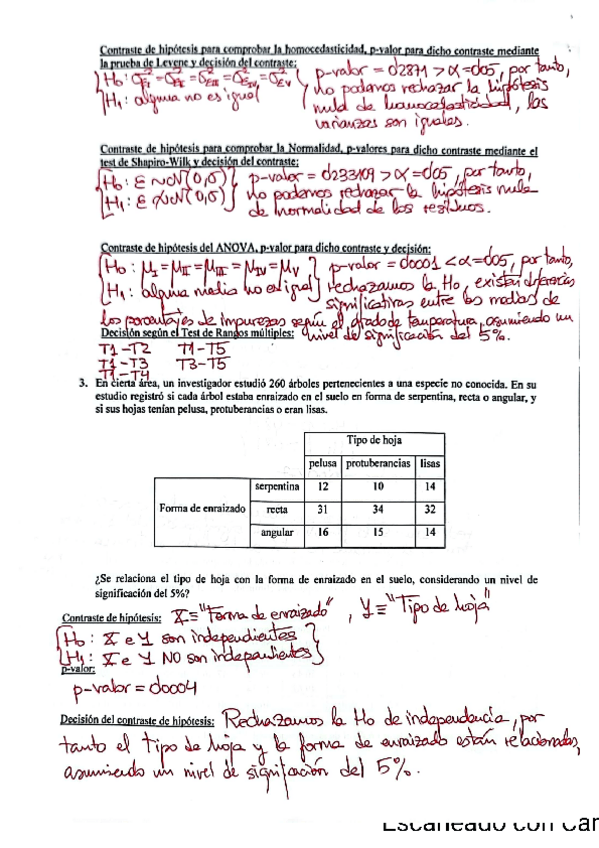 Contraste de hipótesis para comprobar la homocedasticidad, p-valor para dicho contraste mediante
la prueba de Levene y decisión del contraste:
H₀: σ²εI = σ²εII = σ²εIII = σ²εIV = σ²εV
H₁: alguna no es igual
p-valor = 0'2871 > α=0'05, por tanto,
no podemos rechazar la hipótesis
nula de homocedasticidad, las
varianzas son iguales.
Contraste de hipótesis para comprobar la Normalidad, p-valores para dicho contraste mediante el
test de Shapiro-Wilk y decisión del contraste:
H₀: ε ~ N(0,σ)
H₁: ε ≁ N(0,σ)
p-valor = 0'233109 > α=0'05, por tanto,
no podemos rechazar la hipótesis nula
de normalidad de los residuos.
Contraste de hipótesis del ANOVA, p-valor para dicho contraste y decisión:
H₀: μI = μII = μIII = μIV = μV
H₁: alguna media no es igual
p-valor = 0'0001 < α=0'05, por tanto,
rechazamos la H₀, existen diferencias
significativas entre las medias de
los porcentajes de impurezas según el grado de temperatura, asumiendo un
nivel de significación del 5%.
Decisión según el Test de Rangos múltiples:
T1-T2 T1-T5
T1-T3 T3-T5
T1-T4
3. En cierta área, un investigador estudió 260 árboles pertenecientes a una especie no conocida. En su
estudio registró si cada árbol estaba enraizado en el suelo en forma de serpentina, recta o angular, y
si sus hojas tenían pelusa, protuberancias o eran lisas.
Tipo de hoja
pelusa protuberancias lisas
serpentina 12 10 14
Forma de enraizado recta 31 34 32
angular 16 15 14
¿Se relaciona el tipo de hoja con la forma de enraizado en el suelo, considerando un nivel de
significación del 5%?
Contraste de hipótesis: X≡"Forma de enraizado", Y≡"Tipo de hoja"
H₀: X e Y son independientes
H₁: X e Y NO son independientes
p-valor:
p-valor = 0'0004
Decisión del contraste de hipótesis: Rechazamos la H₀ de independencia, por
tanto el tipo de hoja y la forma de enraizado están relacionadas,
asumiendo un nivel de signifcación del 5%.
Escaneado con Car